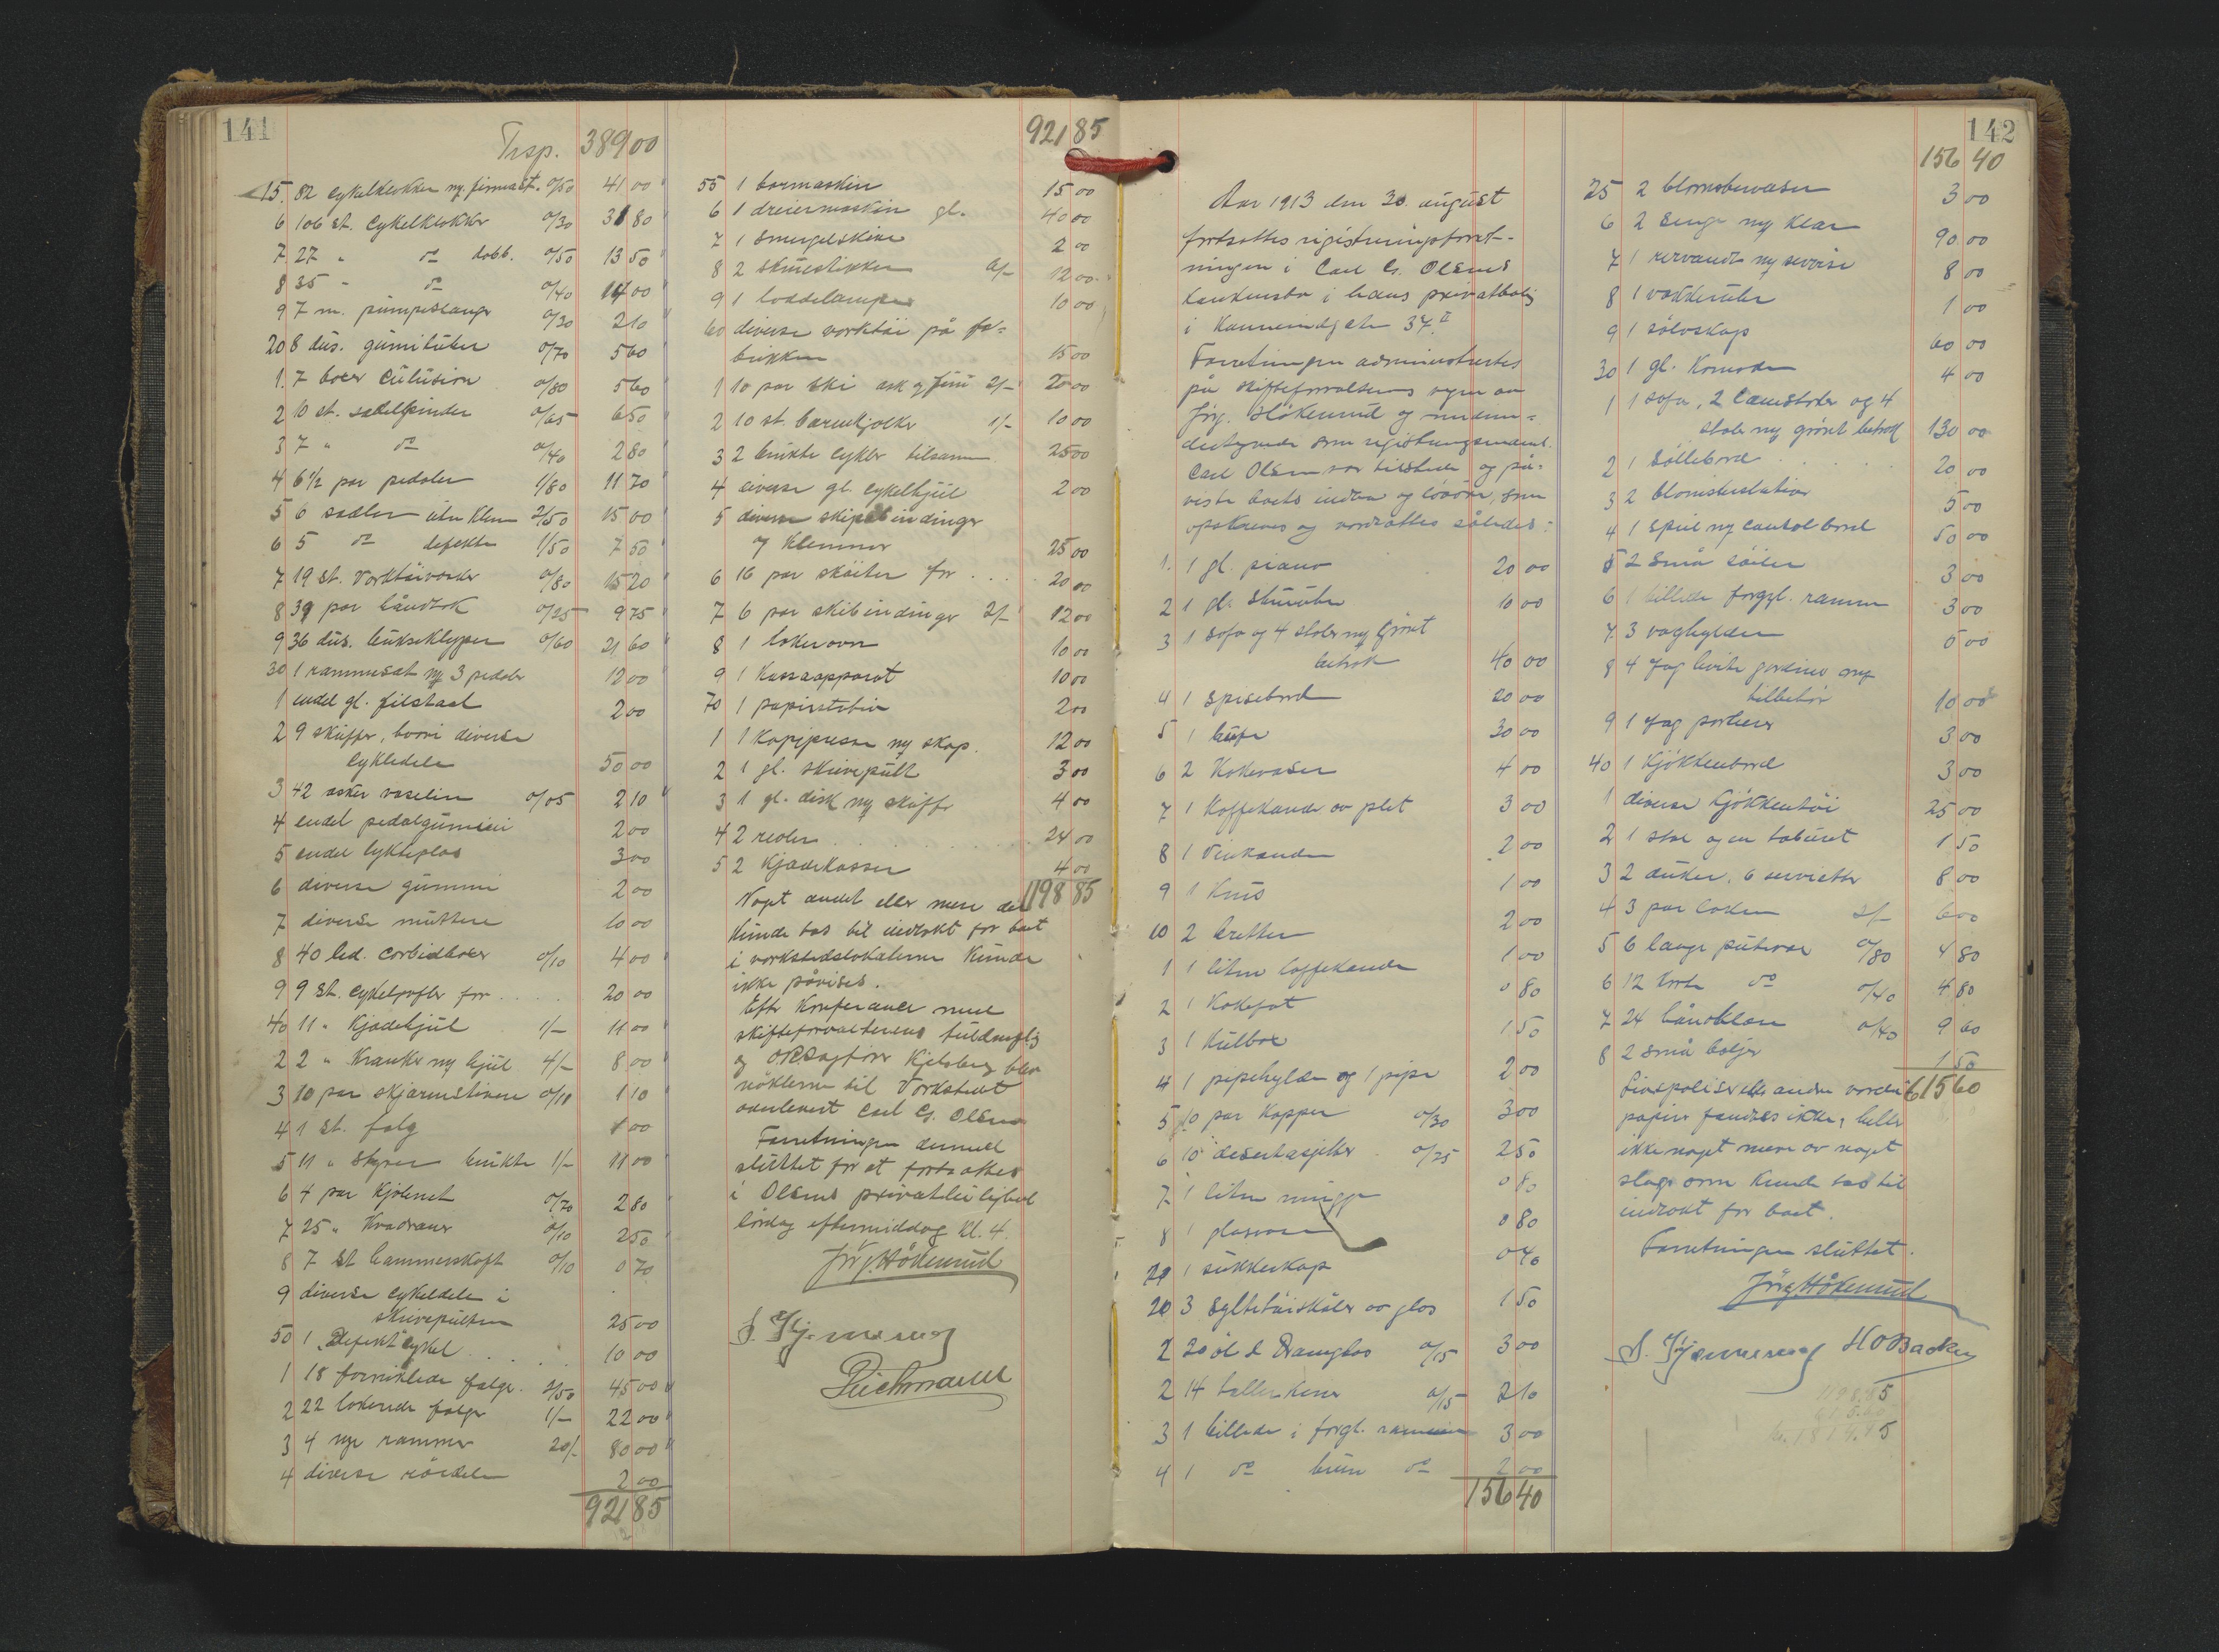 141
Trsp. 38900
15. 82 cykelklokker 0/50 41 00
6 106 st. cykelklokker 0/30 31 80
7 27 " do dobb. 0/50 13 50
8 35 " do 0/40 14 00
9 7 m. pumpeslange 0/30 2 10
20 8 dus. gumituber 0/70 5 60
1. 7 boxer solution 0/80 5 60
2 10 st. sadelpinder 0/65 6 50
3 7 " do 0/40 2 80
4 6 1/2 par pedaler 1/80 11 70
5 6 sadler uten klem 2/50 15 00
6 5 do defekte 1/50 7 50
7 19 st. verktøivesker 0/80 15 20
8 39 par håndtak 0/25 9 75
9 36 dus. bukseklyper 0/60 21 60
30 1 rammesat og 3 pedaler 12 00
1 endel gl. filstaal 2 00
2 9 skuffer, hvori diverse
cykledele 50 00
3 42 æsker vaselin 0/05 2 10
4 endel pedalgummi 2 00
5 endel lykteglas 3 00
6 diverse gummi 2 00
7 diverse muttere 10 00
8 40 bd. carbidbrær 0/10 4 00
9 9 st. cykellygter for 20 00
40 11 " kjædehjul 1/- 11 00
2 2 " kranker og hjul 4/- 8 00
3 10 par skjærmstivere 0/11 1 10
4 1 st. falg 1 00
5 11 " styrer brukte 1/- 11 00
6 4 par kjolenet 0/70 2 80
7 25 " 0/10 2 50
8 7 st hammerskaft 0/10 0 70
9 diverse cykeldele i
skrivepulten 25 00
50 1 defekt cykel 10 00
1 18 forniklede falge. 2/50 45 00
2 22 lakerede falger 1/- 22 00
3 4 nye rammer 20/- 80 00
4 diverse rørdele 2 00
921 85
921 85
55 1 bormaskin 15 00
6 1 dreiermaskin gl. 40 00
7 1 smergelskive 2 00
8 2 skruestikker 6/- 12 00
9 1 loddelampe 10 00
60 diverse verktøi på fa-
brikken 15 00
1 10 par ski ask og furu 2/- 20 00
2 10 st. barnekjelker 1/- 10 00
3 2 brukte cykler tilsamm 25 00
4 diverse gl. cykelhjul 2 00
5 diverse skibindinger
og klemmer 25 00
6 16 par skøiter for 20 00
7 6 par skibindinger 2/- 12 00
8 1 lakerovn 10 00
9 1 kassaapparat 10 00
70 1 papirstativ 2 00
1 1 kopipresse og skap. 12 00
2 1 gl. skrivepult 3 00
3 1 gl. disk og skuffe 4 00
4 2 reoler 24 00
5 2 kjædekasser 4 00
1198 85
Noget andet eller mere der
kunde tas til indtekt for boet
i verkstedslokalerne kunde
ikke påvises.
Efter konferance med
skifteforvalterens fuldmegtig
og ORSagfører Kjelsberg blev
nøklerne til verkstedet
overlevert Carl G. Olsen
Forretningen dermed
sluttet for at fortsættes
i Olsens privatleilighet
lørdag eftermiddag kl. 4.
Jörg. Hökerud
142
Aar 1913 den 30. august
fortsattes registreringsforret-
ningen i Carl G. Olsens
konkursbo i hans privatbolig
i 37. II
Forretningen administrertes
på skifteforvalterens vegne av
Jörg. Hökerud og underte-
degnede som registreringsmænd.
Carl Olsen var tilstede og på-
viste boets indbo og løsøre, som
opskreves og verdsattes således:
1. 1 gl. piano 20 00
2 1 gl. 10 00
3 1 sofa og 4 stoler og grønt
betræk 40 00
4 1 spisebord 20 00
5 1 bufe 30 00
6 2 kakevaser 4 00
7 1 kaffekande av plet 3 00
8 1 vinkande 2 00
9 1 krus 1 00
10 2 bretter 2 00
1 1 liten kaffekande 1 00
2 1 kakefat 0 80
3 1 kulbox 1 50
4 1 pipehylde og 1 pipe 2 00
5 10 par kopper 0/30 3 00
6 10 desertasjetter 0/25 2 50
7 1 liten mugge 0 80
8 1 glasvase 0 80
1 sukkerkop 0 40
20 3 syltetøiskåler av glas 1 50
2 20 øl & dramglas 0/15 3 00
2 14 tallerkener 0/15 2 10
3 1 billede i forgl. ramme 3 00
4 1 do brun do 2 00
156 40
156 40
25 2 blomstervaser 3 00
6 2 senge og klær 90 00
7 1 servant og servise 8 00
8 1 vækkeruhr 1 00
9 1 sølvskap 60 00
30 1 gl. komode 4 00
1 1 sofa, 2 lænestoler og 4
stole og grønt betræk 130 00
2 1 sallebord 20 00
3 2 blomsterstativer 5 00
4 1 speil og consolbord 50 00
5 2 små søiler 3 00
6 1 billede forgyl. ramme 3 00
7 3 veghylder 5 00
8 4 fag hvite gardiner med
tilbehør 10 00
9 1 fag portierer 3 00
40 1 kjøkkenbord 3 00
1 diverse kjøkkentøi 25 00
2 1 stol og en taburet 1 50
3 2 duker, 6 servietter 8 00
4 3 par laken 2/- 6 00
5 6 lange putevar 0/80 4 80
6 12 korte do 0/40 4 80
7 24 håndklær 0/40 9 60
8 2 små baljer 1 50
615 60
Livspoliser eller andre verdi
papirer fandtes ikke, heller
ikke noget mere av noget
slags som kunde tas til
indtekt for boet.
Forretningen sluttet.
Jörg. Hökerud
H O Backe
1198.85
615.60
kr. 1814.45